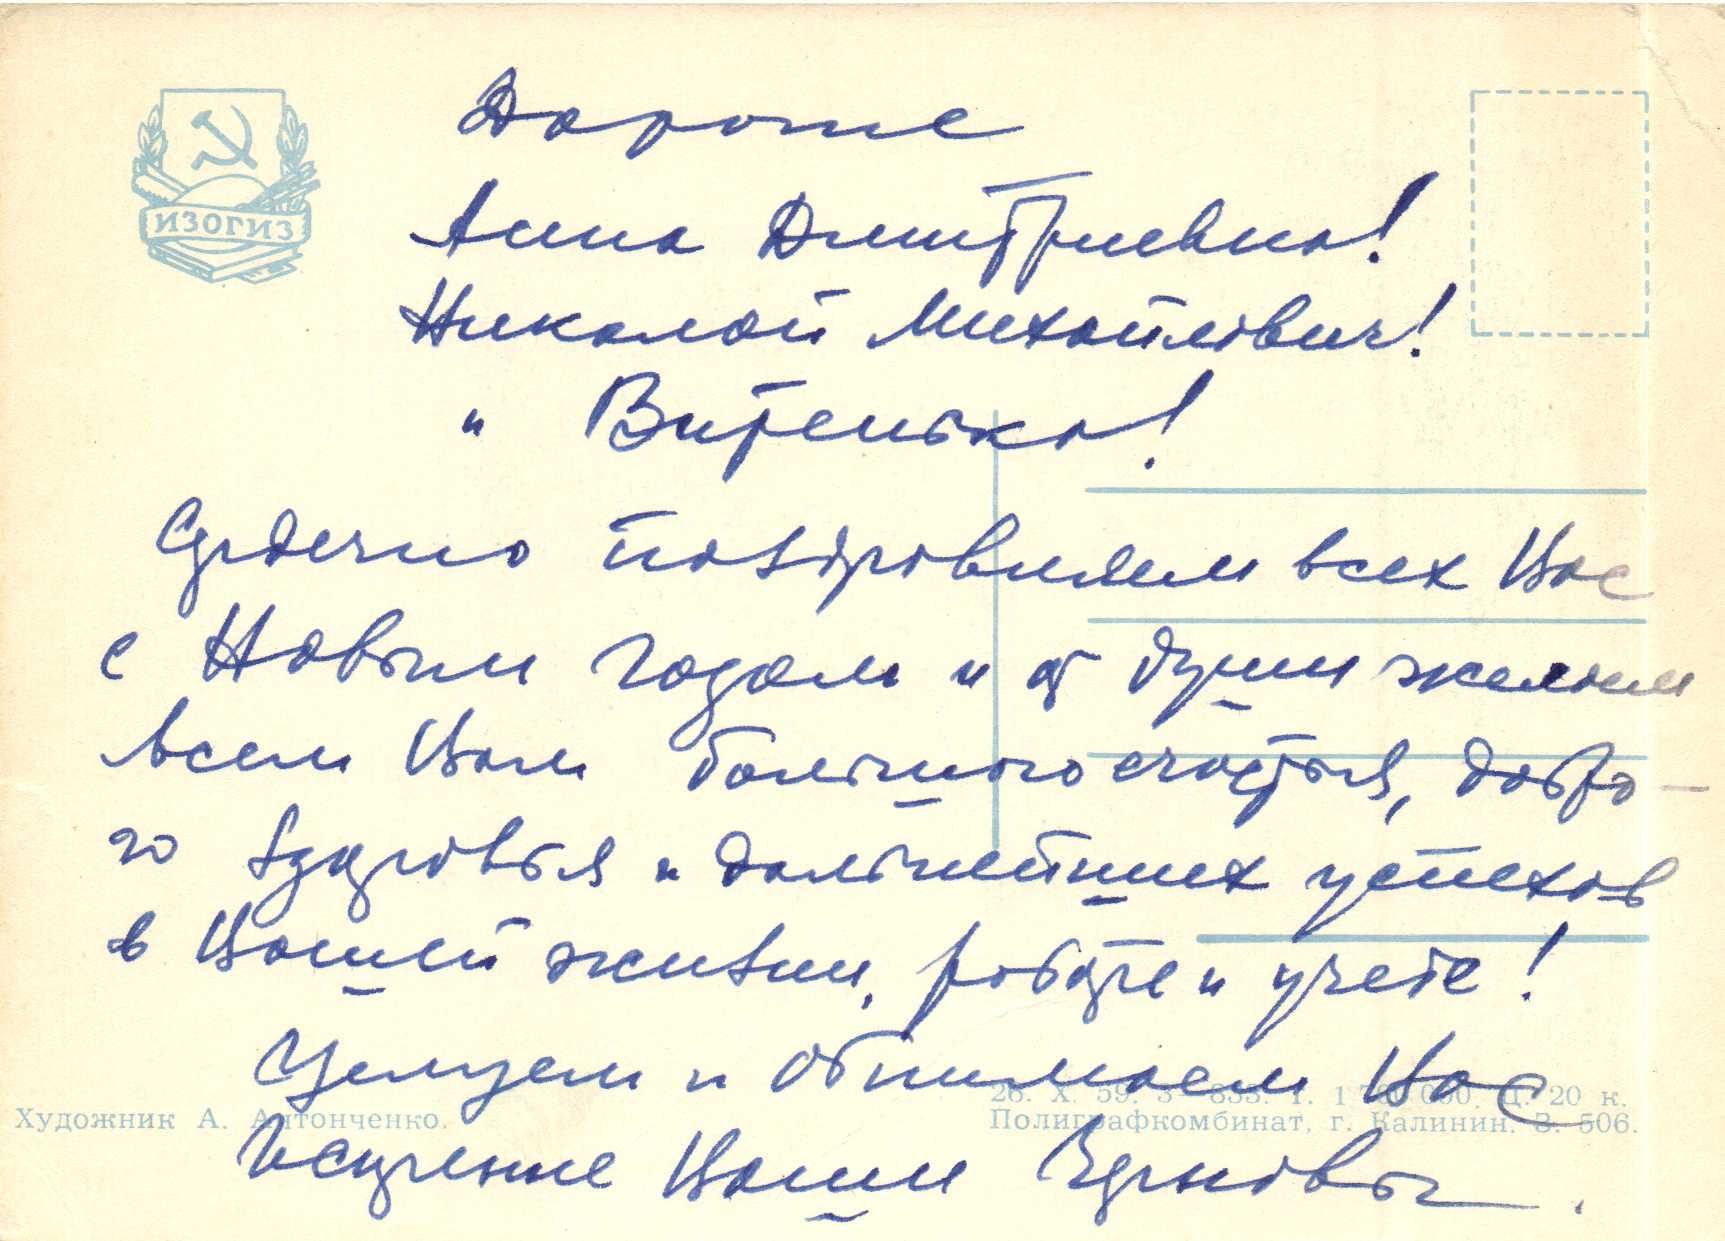 ИЗОГИЗ
Дорогие
Анна Дмитриевна!
Николай Михайлович!
и Витенька!
Сердечно поздравляем всех Вас
с Новым годом и от души желаем
всем Вам большого счастья, добро-
го здоровья и дальнейших успехов
в Вашей жизни, работе и учебе!
Целуем и обнимаем Вас
Искренне Ваши
Художник А. Антонченко.
26. X. 59. З- 853. Т. 1 700 000. Ц. 20 к.
Полиграфкомбинат, г. Калинин. З. 506.